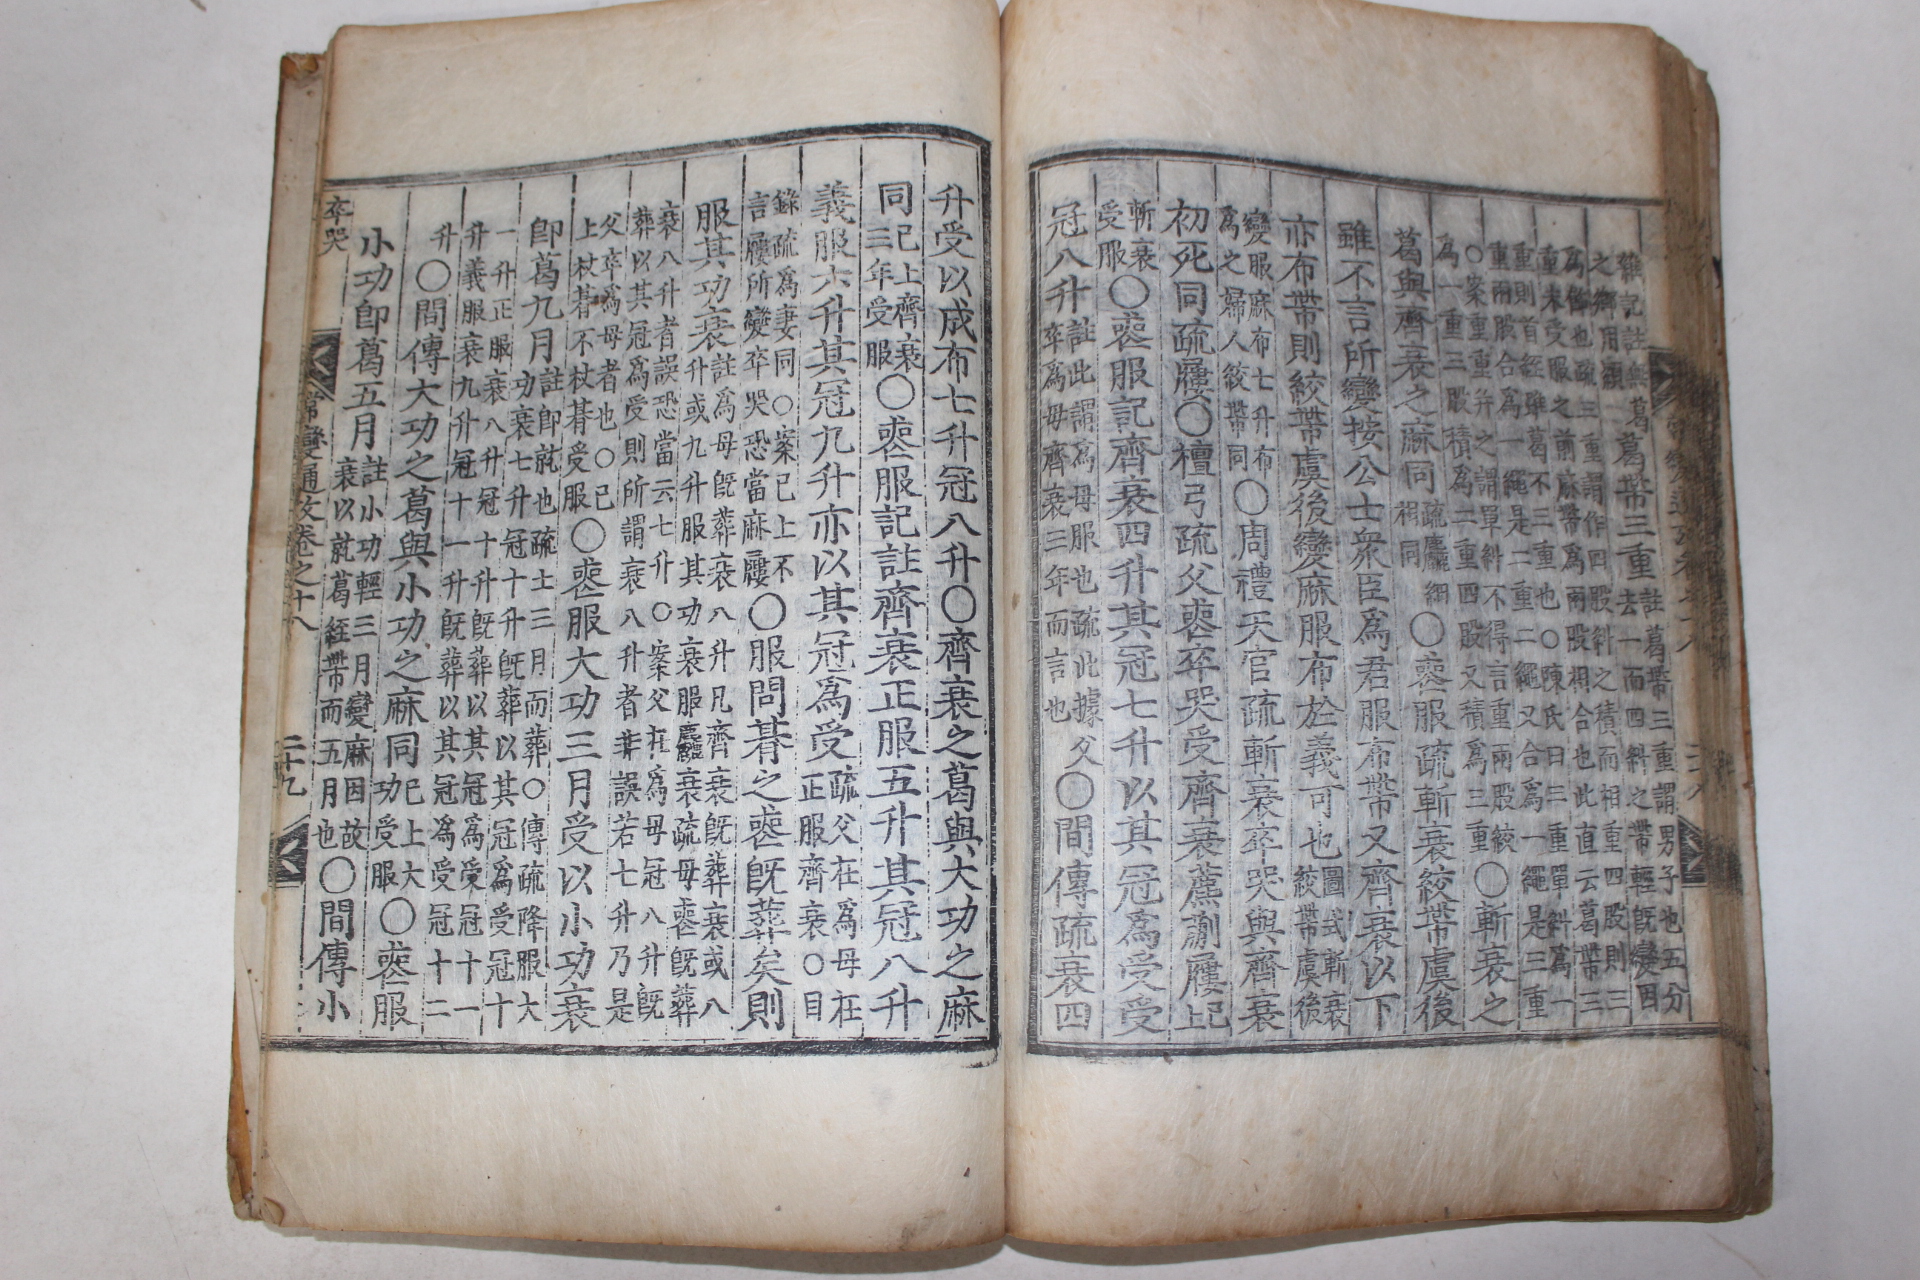 雜記註與葛葛帶三重註葛帶三重謂男子也五分
去一而四糾之帶輕旣變因
為飾也疏三重謂作四股糾之積而相重四股則三
重未受服之前麻帶爲兩股相合也此直云葛帶三
重則首絰雖葛不三重也○陳氏曰三重單糾爲一
重兩股合爲一繩是二重二繩又合爲一繩是三重
○案重重幷之謂單糾不得言重兩股絞
爲一重三股積爲二重四股又積爲三重○斬衰之
葛與齊衰之麻同疏麤細相同○喪服疏斬衰絞帶虞後
雖不言所變按公士衆臣爲君服布帶又齊衰以下
亦布帶則絞帶虞後變麻服布於義可也圖式斬衰絞帶虞後
變服麻布七升布爲之婦人絞帶同○周禮天官疏斬衰卒哭與齊衰
初死同疏屨○檀弓疏父喪卒哭受齊衰蔍蒯屨上已
斬衰受服○喪服記齊衰四升其冠七升以其冠爲受受
冠八升註此謂爲母服也疏此據父卒爲母齊衰三年而言也○間傳疏衰四
升受以成布七升冠八升○齊衰之葛與大功之麻
同已上齊衰三年受服○喪服記註齊衰正服五升其冠八升
義服六升其冠九升亦以其冠爲受疏父在爲母在正服齊衰○目
錄疏爲妻同○案已上不言屨所變卒哭恐當麻屨○服問朞之喪旣葬矣則
服其功衰註爲母旣葬衰八升凡齊衰旣葬衰或八升或九升服其功衰服麤衰疏母喪旣葬
衰八升者誤恐當云七升○案父在爲母冠八升旣
葬以其冠爲受則所謂衰八升者非誤若七升乃是
父卒爲母者也○已上杖朞不杖朞受服○喪服大功三月受以小功衰
卽葛九月註卽就也疏士三月而葬○傳疏降服大功衰七升冠十升旣葬以其冠爲受冠十
一升正服衰八升冠十升旣葬以其冠爲受冠十一
升義服衰九升冠十一升旣葬以其冠爲受冠十二
升○間傳大功之葛與小功之麻同已上大功受服○喪服
小功卽葛五月註小功輕三月變麻因故衰以就葛絰帶而五月也○間傳小
卒哭
常變通攷卷之十八
二十九